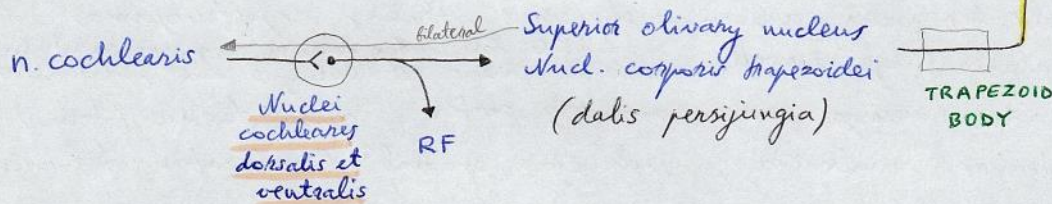 bilateral
n. cochlearis
Superior olivary nucleus
Nucl. corporis trapezoidei
(dalis persijungia)
Nuclei
cochleares
dorsalis et
ventralis
RF
TRAPEZOID
BODY